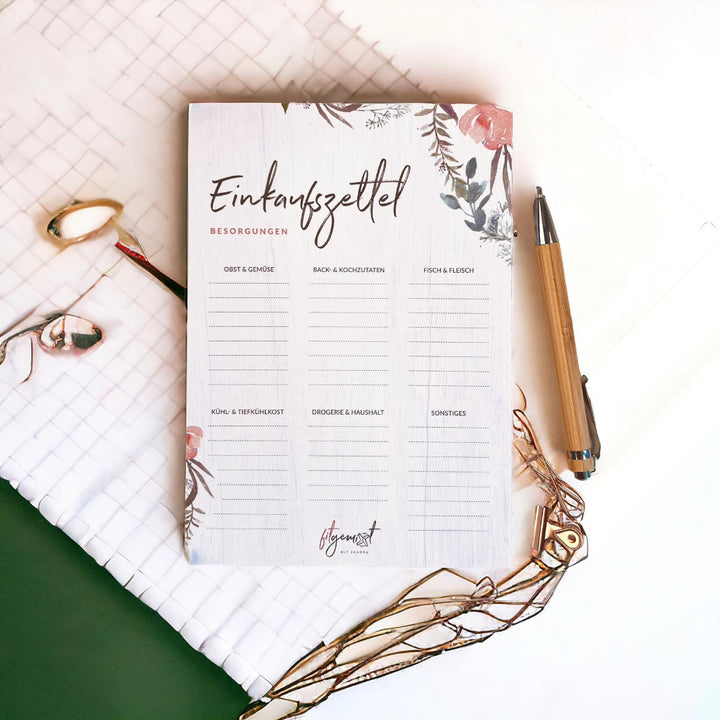 Einkaufszettel
BESORGUNGEN
OBST & GEMÜSE
BACK- & KOCHZUTATEN
FISCH & FLEISCH
KÜHL- & TIEFKÜHLKOST
DROGERIE & HAUSHALT
SONSTIGES
fitgemixt
MIT SANDRA